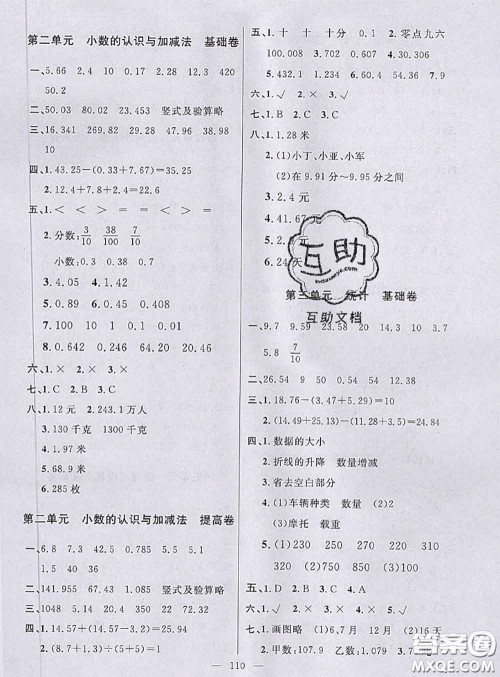 第二单元　小数的认识与加减法　基础卷
一、5.66　2.4　10　0.17　2.3　12.3　420
50.2
二、50.03　80.02　23.453　竖式及验算略
三、16.341　269.82　29.28　48.96　38.89
10
四、1.43.25－(0.33+7.67)=35.25
2.12.4+7.8+2.4=22.6
五、1.＜　＜　＞　＝　＞　＞
2.分数：3/10　38/100　7/10
小数：0.3　0.38　0.7
3.4.05　4.1.42
5.0.809　6.0.45
7.100　9　10　1
8.0.642　0.246　6.420　0.246
六、1.×　2.×　3.×
七、1.C　2.B　3.C
八、1.12元　2.243.1万人
3.130千克　1300千克
4.1.97米
5.68.9米
6.285枚
第二单元　小数的认识与加减法　提高卷
一、6.8　7.3　42.3　0.735　5.5　5.1
1.5
二、141.955　67.44　1.085　竖式及验算略
三、1048　5.24　5.34　13.4
四、1.14.57－(4.1+6.37)=4.1
2.
五、1.十　十　十分　0.1　2.零点九六
100.008　3.4.52　4.70.306
5.432.1　0.1234　6.0.01
六、1.√　2.×　3.√
七、1.B　2.C
八、1.1.28米
2.(1)小丁、小亚、小军
(2)在9.91分～9.95分之间
3.2.4元
4.41.67元
5.2
6.24天
第三单元　统计　基础卷
互助
互助文档
一、9.7　9.59　23.58　20　14.3　10　3.7
5.8　7/10
二、26.54　3.44　10.1　10.21
三、1.18.76－(3.47+5.29)=10
2.(9.45－4.61)+(14.71+5.29)=24.84
四、1.数据的大小
2.折线的升降　数量增减
3.省去空白部分
4.(1)车辆种类　数量　(2)50
(3)摩托　载重
5.(1)230　250　240　280
320　300　(2)二　六
五、1.D　2.C　3.C　4.D
六、1.×　2.×　3.√　4.×　5.√
七、1.画图略　(1)6月　12月　(2)16天
2.甲数：　乙数：
110
答案圈
MXQE.COM